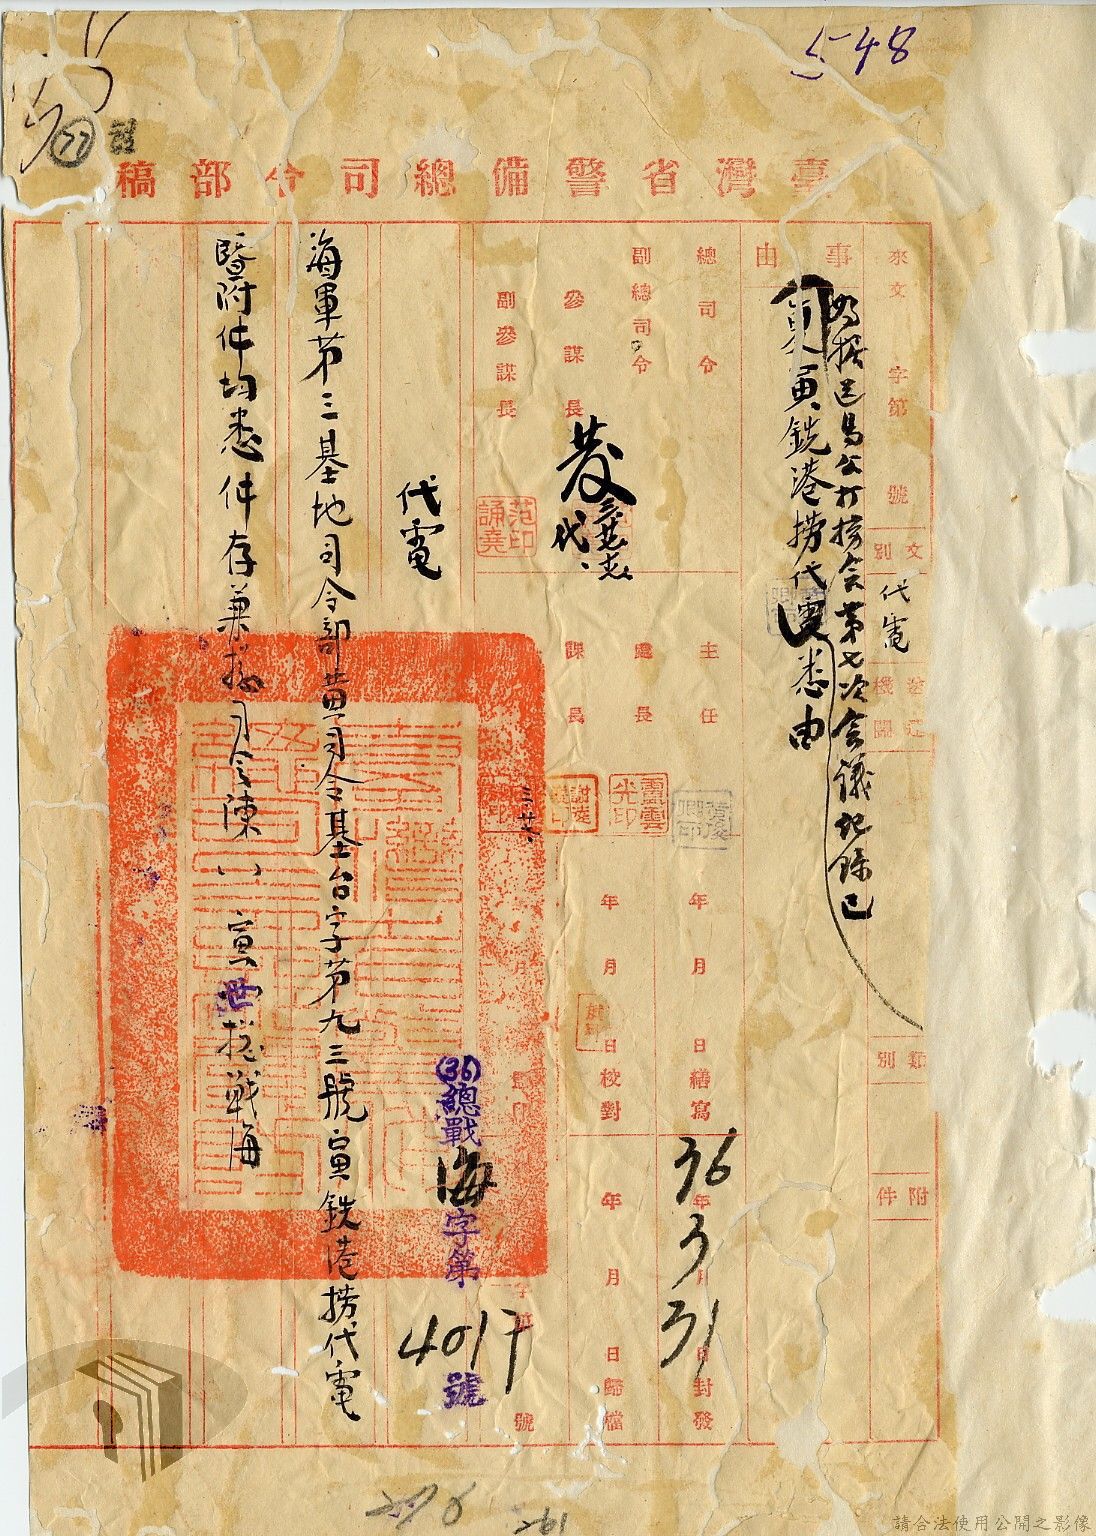 548
77
臺灣省警備總司令部稿
來文 字第 號
文別
代電
送達機關
類別
附件
事由
為據送馬公打撈會第七次會議記錄已
寅銑港撈代電悉由
總司令
副總司令
參謀長
副參謀長
代
范誦堯印
主任
處長
課長
年 月 日繕寫
年 月 日校對
36年3月31日封發
年 月 日歸檔
代電
(36)總戰海字第4017號
海軍第三基地司令部黃司令基台字第九三號寅銑港撈代電
暨附件均悉件存兼總司令陳 寅世總戰海
請合法使用公開之影像